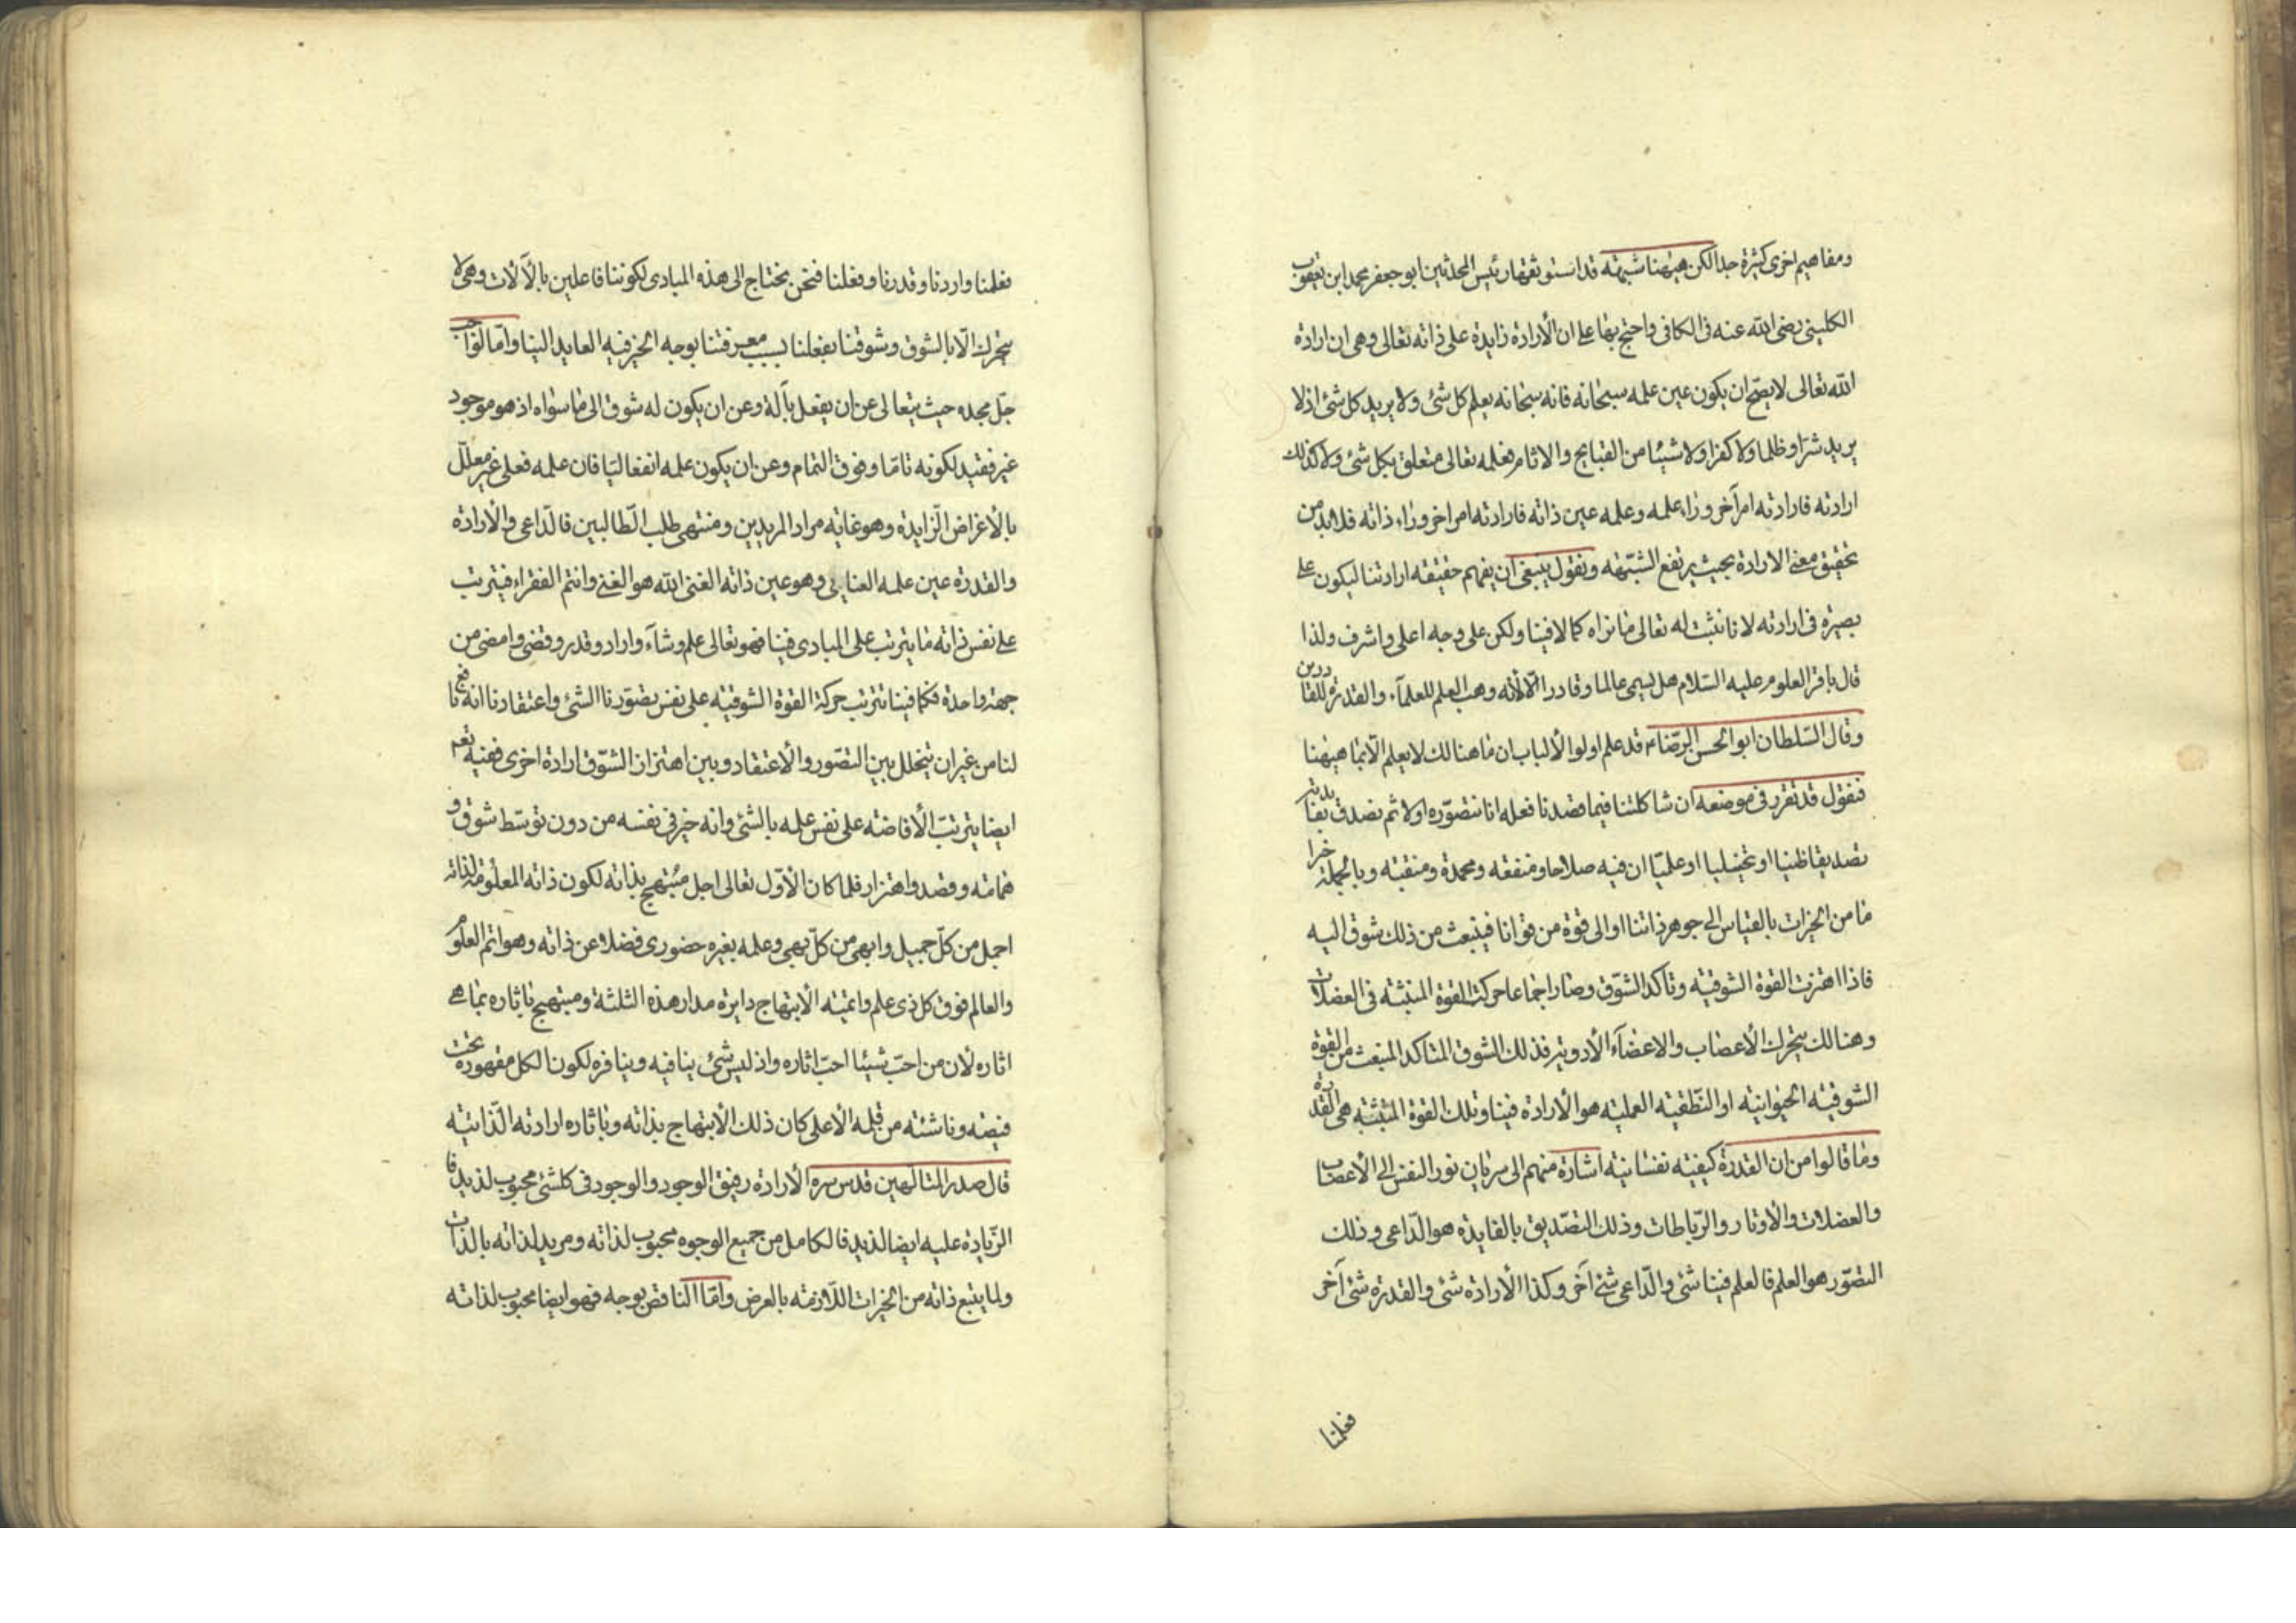 ومفاهيم اخرى كثيرة جدا لكن ههنا شبهة قد استوثقها رئيس المحدثين ابو جعفر محمد ابن يعقوب
الكليني رضى الله عنه فى الكافى واحتج بها على ان الأرادة زايدة على ذاته تعالى وهى ان ارادة
الله تعالى لا يصح ان يكون عين علمه سبحانه فانه سبحانه يعلم كل شئ ولا يريد كل شئ اذ لا
يريد شرا وظلما ولا كفرا ولا شيئا من القبايح والاثام فعلمه تعالى متعلق بكل شئ ولا كذلك
ارادته فارادته امر آخر وراء علمه وعلمه عين ذاته فارادته امر اخر وراء ذاته فلا بد من
تحقيق معنى الارادة بحيث يرتفع الشبهة ونقول ينبغى ان يفهم حقيقة ارادتنا ليكون على
بصيرة فى ارادته لانا نثبت له تعالى ما نراه كمالا فينا ولكن على وجه اعلى واشرف ولذا
قال باقر العلوم عليه السلام هل يسمى عالما وقادرا الا لأنه وهب العلم للعلمآء والقدرة للقادرين
وقال السلطان ابو الحسن الرضاء قد علم اولوا الألباب ان ما هنالك لا يعلم الا بما ههنا
فنقول قد تقرر فى موضعه ان شاكلتنا فيما قصدنا فعله انا نتصوره اولا ثم نصدق بفايدته
تصديقا ظنيا او تخيليا او علميا ان فيه صلاحا ومنفعة ومحمدة ومنقبة وبالجملة خيرا
ما من الخيرات بالقياس الى جوهر ذاتنا او الى قوة من قوانا فينبعث من ذلك شوق اليه
فاذا اهتزت القوة الشوقية وتأكد الشوق وصار اجماعا حركت القوة المنبثة فى العضلات
وهنالك يتحرك الأعصاب والاعضآء الأدوية فذلك الشوق المتاكد المنبعث من القوة
الشوقية الحيوانية او النطقية العملية هو الأرادة فينا وتلك القوة المنبثة هى القدرة
وما قالوا من ان القدرة كيفية نفسانية اشارة منهم الى سريان نور النفس الى الأعصاب
والعضلات والأوتار والرباطات وذلك التصديق بالفايدة هو الداعى وذلك
التصور هو العلم فالعلم فينا شئ والداعى شئ آخر وكذا الأرادة شئ والقدرة شئ آخر
فعلمنا
فعلمنا واردنا وقدرنا وفعلنا فنحن نحتاج الى هذه المبادى لكوننا فاعلين بالآلات وهى لا
يتحرك الا بالشوق وشوقنا بفعلنا بسبب معرفتنا بوجه الخير فيه العايد الينا واما الواجب
جل مجده حيث يتعالى عن ان يفعل بآلة وعن ان يكون له شوق الى ما سواه اذ هو موجود
غير فقيد لكونه تاما وفوق التمام وعن ان يكون علمه انفعاليا فان علمه فعلى غير معلل
بالأغراض الزايدة وهو غاية مراد المريدين ومنتهى طلب الطالبين فالداعى والأرادة
والقدرة عين علمه العنايى وهو عين ذاته الغنى الله هو الغنى وانتم الفقراء فيترتب
على نفس ذاته ما يترتب على المبادى فينا فهو تعالى علم وشآء واراد وقدر وقضى وامضى من
جهة واحدة فكما فينا تترتب حركة القوة الشوقية على نفس تصورنا الشئ واعتقادنا انه نافع
لنا من غير ان يتخلل بين التصور والأعتقاد وبين اهتزاز الشوق ارادة اخرى ففيه تعم
ايضا يترتب الأفاضة على نفس علمه بالشئ وانه خير فى نفسه من دون توسط شوق و
همامة وقصد واهتزاز فلما كان الأول تعالى اجل مبتهج بذاته لكون ذاته المعلومة لذاته
اجمل من كل جميل وابهى من كل بهى وعلمه بغيره حضورى فضلا عن ذاته وهو اتم العلوم
والعالم فوق كل ذى علم واتمية الأبتهاج دايرة مدار هذه الثلثة ومبتهج باثاره بما هى
اثاره لأن من احب شيئا احب اثاره واذ ليس شئ ينافيه وينافره لكون الكل مقهورة تحت
فيضه وناشئة من قبله الأعلى كان ذلك الأبتهاج بذاته وباثاره ارادته الذاتية
قال صدر المتالهين قدس سره الأرادة رفيق الوجود والوجود فى كلشئ محبوب لذيذ فا
الزيادة عليه ايضا لذيذ فالكامل من جميع الوجوه محبوب لذاته ومريد لذاته بالذات
ولما يتبع ذاته من الخيرات اللازمة بالعرض واما الناقص بوجه فهو ايضا محبوب لذاته